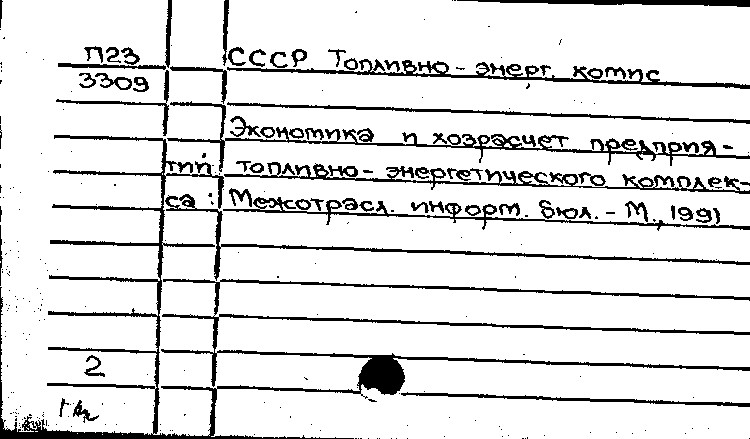 П23 СССР. Топливно-энерг. компс
3309
Экономика и хозрасчет предприя-
тий топливно-энергетического комплек-
са: Межотрасл. информ. бюл. - М., 1991
2